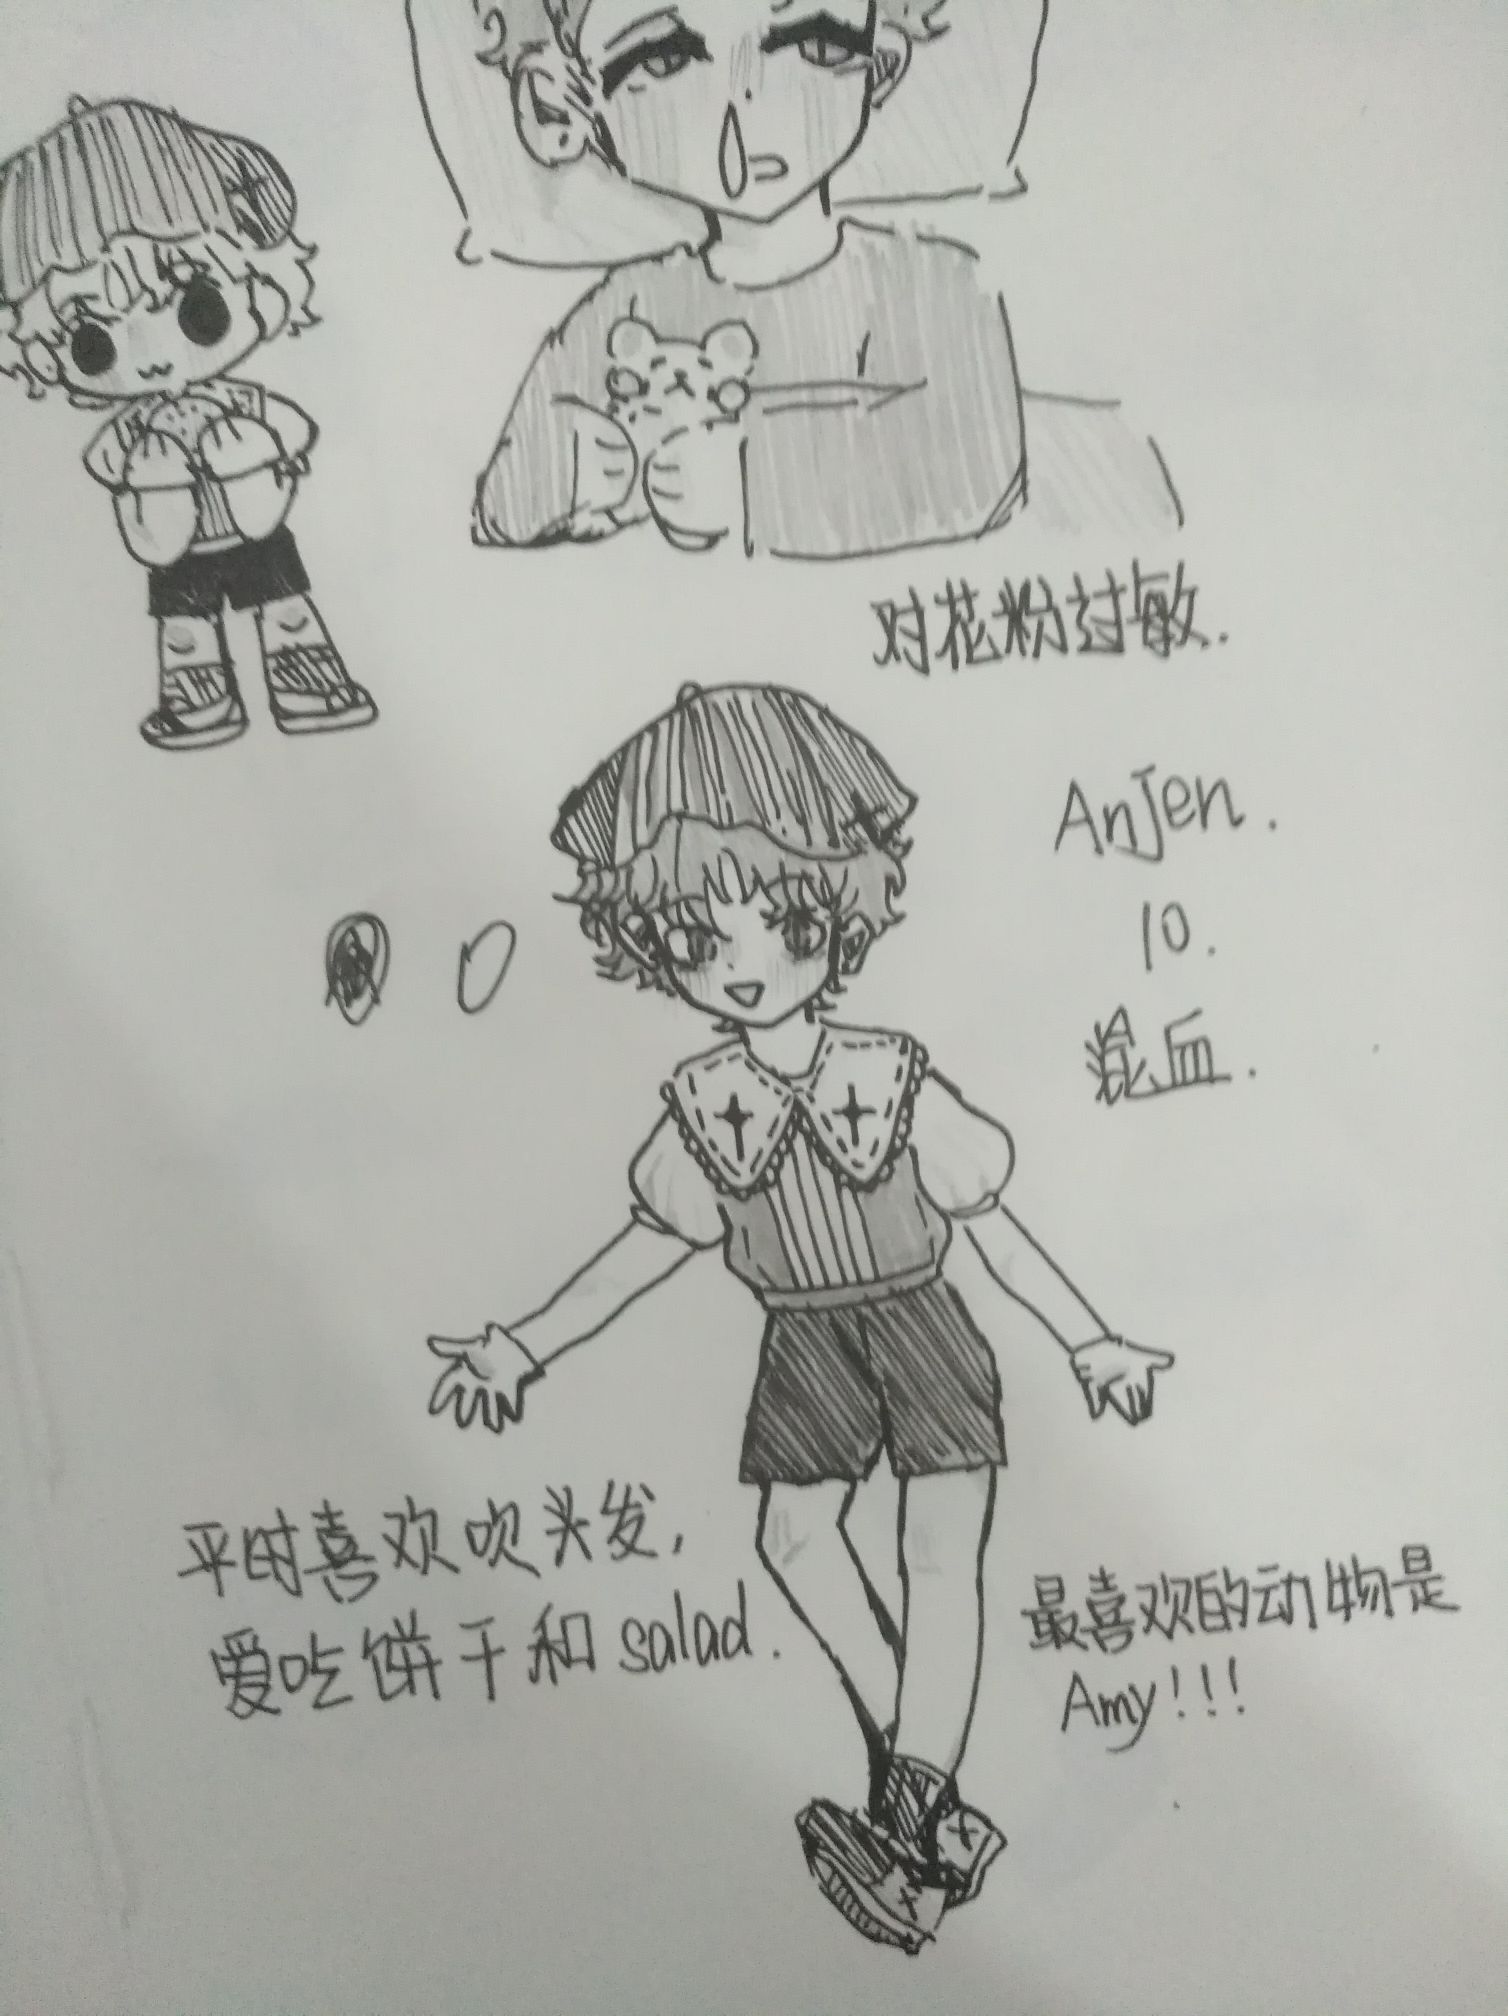 对花粉过敏.
AnJen.
10.
混血.
平时喜欢吹头发,
爱吃饼干和salad.
最喜欢的动物是
Amy!!!